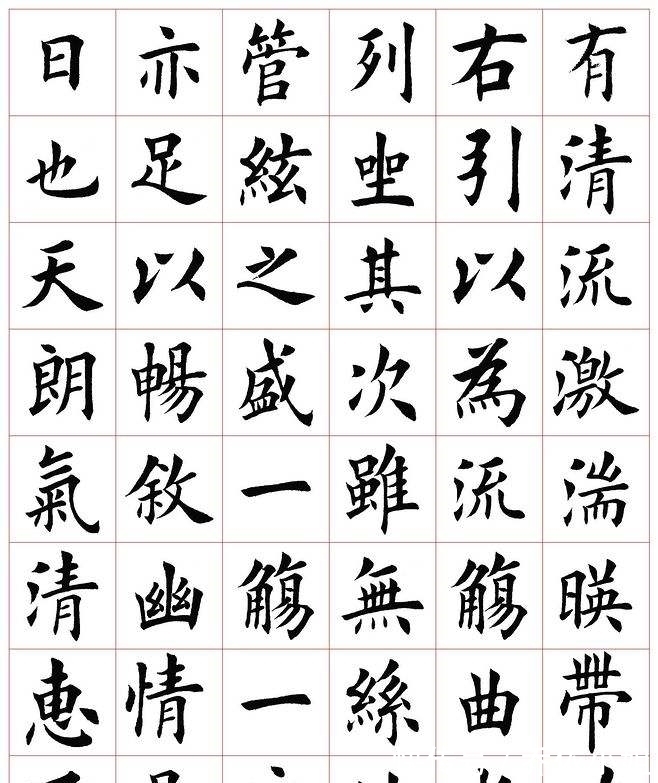 有清流激湍暎帶
右引以為流觴曲
列坐其次雖無絲
管絃之盛一觴一
亦足以暢敘幽情
日也天朗氣清惠